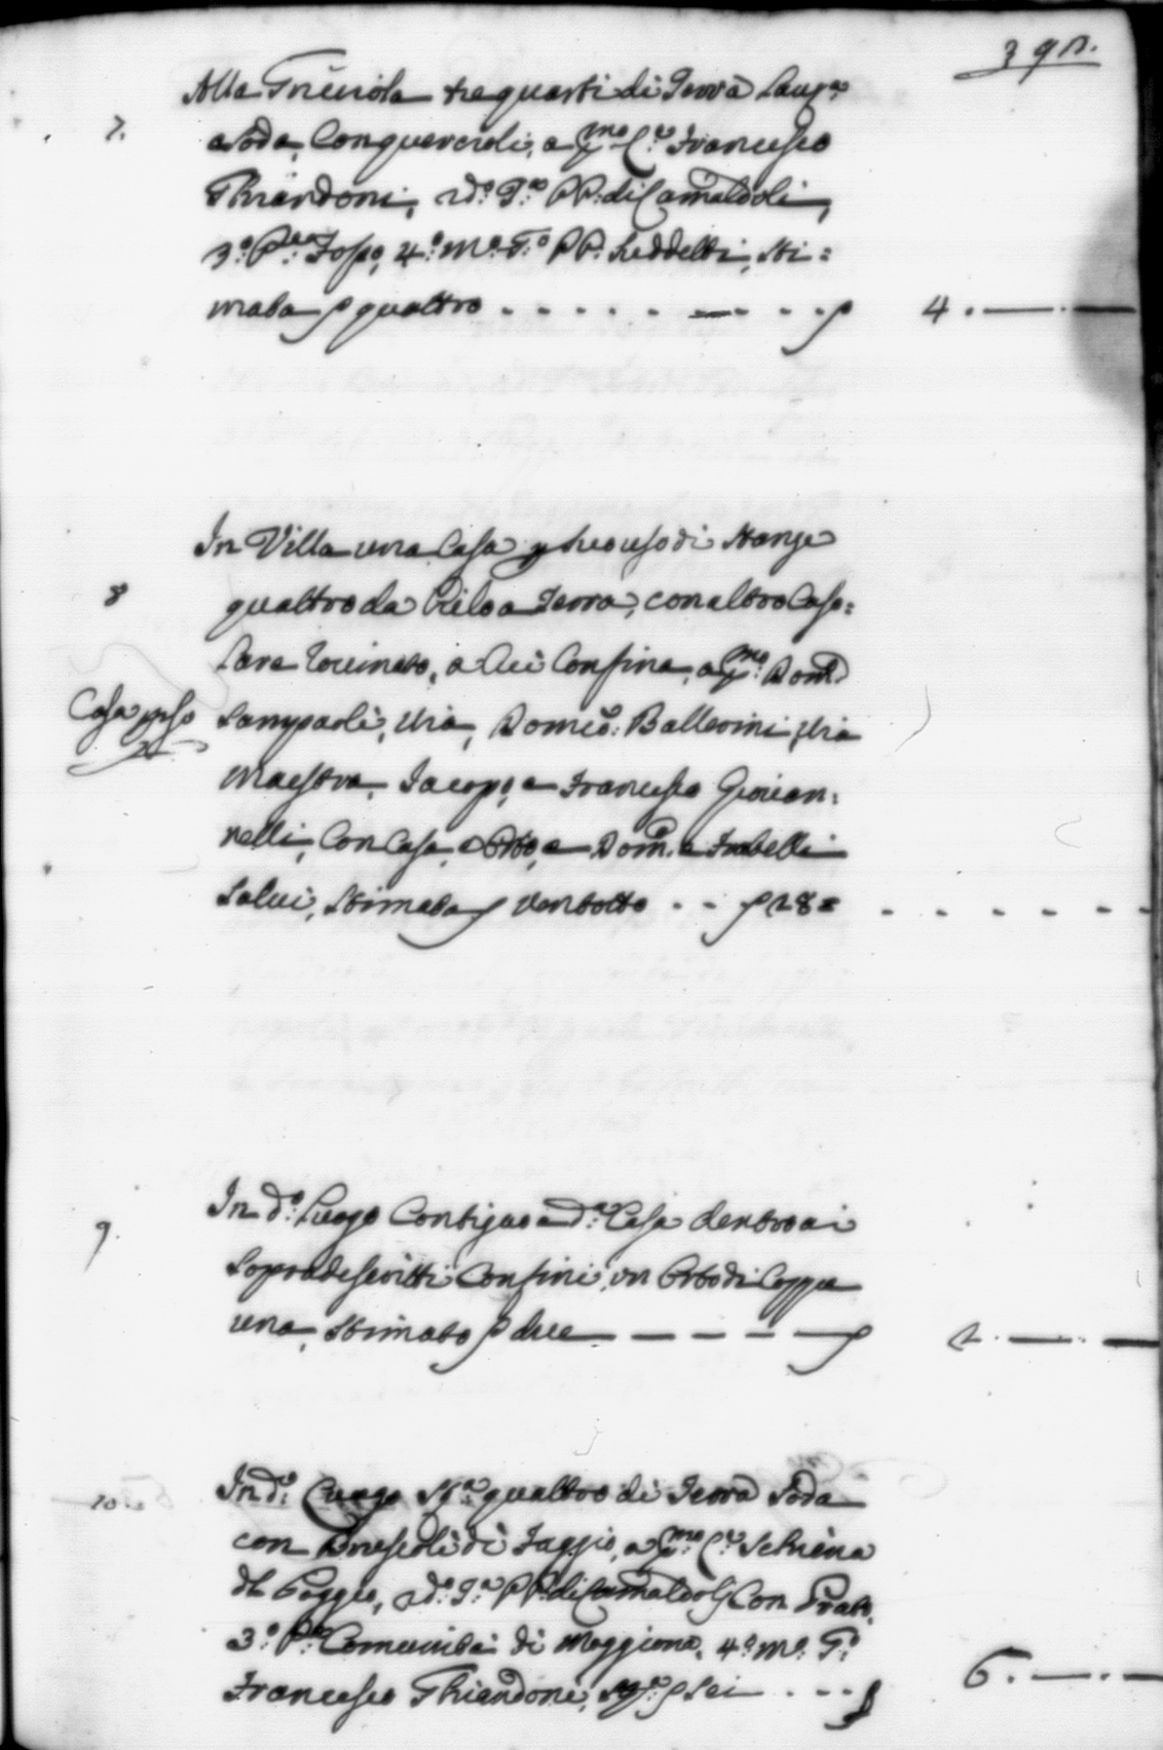 392.
Alla tre quarti di Terra Lau:ª
7. a Soda, Con quercioli, a p.mo C.º Francesco
Ghiandoni, 2.dº T.ª PP: di Camaldoli,
3.º P.ª Fosso, 4.º M.º T.º PP. Suddetti, sti=
mata ∫ quattro . . . . . . . . . ∫ 4 . — . —
In Villa una Casa p suo uso di Stanze
8 quattro da Cielo a Terra, con altro Caso=
lare rovinato, a cui Confina, a p.mo Dom.º
Casa p uso
Sanpaoli, Via, Domco: Ballerini, Via
Maestra, Jacopo, e Francesco Giovan=
nelli, Con Casa, e Orto, e Dom. e Fratelli
Salvi, Stimata ∫ Ventotto . . ∫ 28 = . . . . . .
9. In d.º Luogo Contiguo a d.ª Casa dentro ai
Sopradescritti Confini, un Orto di Coppe
una, Stimato ∫ due — — — — ∫ 2 . — . —
10. In d.º Luogo St.ª quattro di Terra Soda
con di Faggio, a p.mo C.º Schiena
del Poggio, 2.dº T.ª PP. di Camaldoli Con Prato,
3.º P.ª Comunità di Moggiona, 4.º M.º T.º
Francesco Ghiandoni, St.ª ∫ Sei . . - - ∫ 6 . — . —